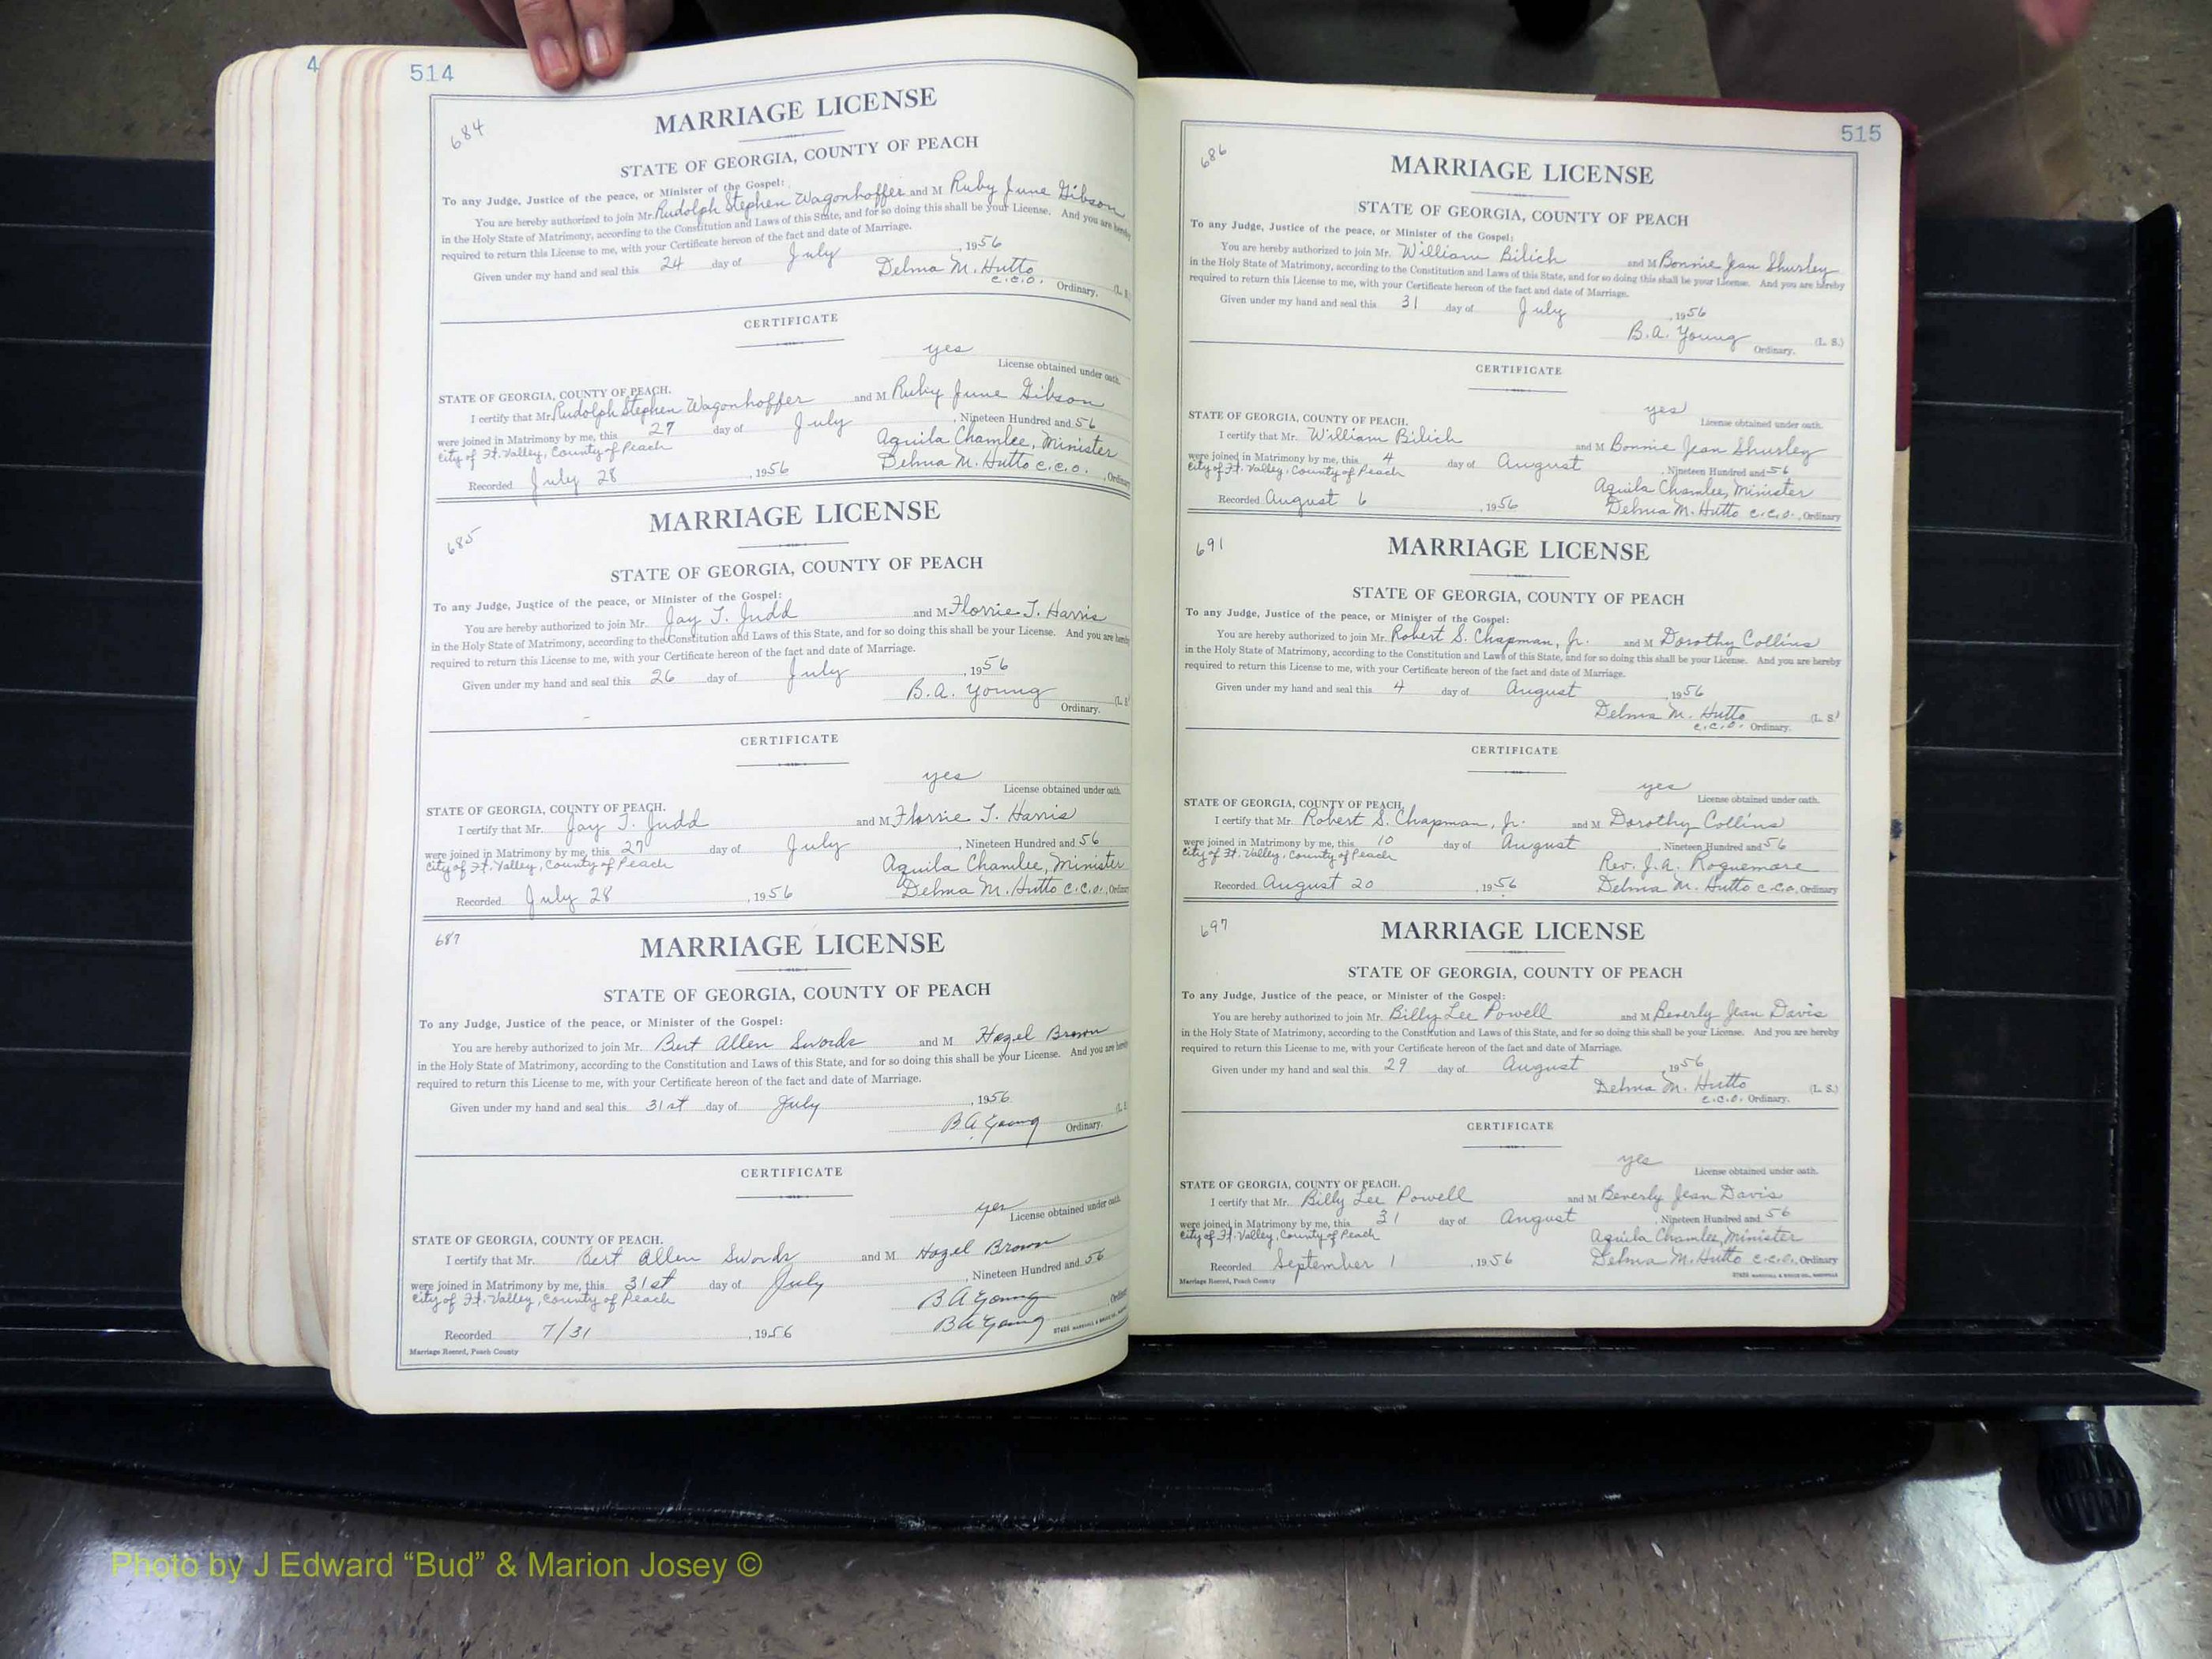 4
514
684
MARRIAGE LICENSE
STATE OF GEORGIA, COUNTY OF PEACH
To any Judge, Justice of the peace, or Minister of the Gospel:
You are hereby authorized to join Mr. Rudolph Stephen Wagonhoffer and M Ruby June Gibson
in the Holy State of Matrimony, according to the Constitution and Laws of this State, and for so doing this shall be your License. And you are hereby
required to return this License to me, with your Certificate hereon of the fact and date of Marriage.
Given under my hand and seal this 24 day of July, 1956
Delma M. Hutto
C.C.O. Ordinary. (L. S.
CERTIFICATE
yes
License obtained under oath.
STATE OF GEORGIA, COUNTY OF PEACH.
I certify that Mr. Rudolph Stephen Wagonhoffer and M Ruby June Gibson
were joined in Matrimony by me, this 27 day of July, Nineteen Hundred and 56
City of Ft. Valley, County of Peach
Aquila Chamlee, Minister
Recorded July 28, 1956 Delma M. Hutto C.C.O., Ordinary
685
MARRIAGE LICENSE
STATE OF GEORGIA, COUNTY OF PEACH
To any Judge, Justice of the peace, or Minister of the Gospel:
You are hereby authorized to join Mr. Jay T. Judd and M Florrie T. Harris
in the Holy State of Matrimony, according to the Constitution and Laws of this State, and for so doing this shall be your License. And you are hereby
required to return this License to me, with your Certificate hereon of the fact and date of Marriage.
Given under my hand and seal this 26 day of July, 1956
B.A. Young (L. S
Ordinary.
CERTIFICATE
yes
License obtained under oath.
STATE OF GEORGIA, COUNTY OF PEACH.
I certify that Mr. Jay T. Judd and M Florrie T. Harris
were joined in Matrimony by me, this 27 day of July, Nineteen Hundred and 56
City of Ft. Valley, County of Peach
Aquila Chamlee, Minister
Recorded July 28, 1956 Delma M. Hutto C.C.O., Ordinary
687
MARRIAGE LICENSE
STATE OF GEORGIA, COUNTY OF PEACH
To any Judge, Justice of the peace, or Minister of the Gospel:
You are hereby authorized to join Mr. Bert Allen Swords and M Hazel Brown
in the Holy State of Matrimony, according to the Constitution and Laws of this State, and for so doing this shall be your License. And you are hereby
required to return this License to me, with your Certificate hereon of the fact and date of Marriage.
Given under my hand and seal this 31st day of July, 1956
B A Young (L.
Ordinary.
CERTIFICATE
yes
License obtained under oath.
STATE OF GEORGIA, COUNTY OF PEACH.
I certify that Mr. Bert Allen Swords and M Hazel Brown
were joined in Matrimony by me, this 31st day of July, Nineteen Hundred and 56
City of Ft. Valley, County of Peach
B A Young
Recorded 7/31, 1956 B A Young, Ordinary
Marriage Record, Peach County
515
686
MARRIAGE LICENSE
STATE OF GEORGIA, COUNTY OF PEACH
To any Judge, Justice of the peace, or Minister of the Gospel:
You are hereby authorized to join Mr. William Bilich and M Bonnie Jean Shurley
in the Holy State of Matrimony, according to the Constitution and Laws of this State, and for so doing this shall be your License. And you are hereby
required to return this License to me, with your Certificate hereon of the fact and date of Marriage.
Given under my hand and seal this 31 day of July, 1956
B.A. Young (L. S.)
Ordinary.
CERTIFICATE
yes
License obtained under oath.
STATE OF GEORGIA, COUNTY OF PEACH.
I certify that Mr. William Bilich and M Bonnie Jean Shurley
were joined in Matrimony by me, this 4 day of August, Nineteen Hundred and 56
City of Ft. Valley, County of Peach
Aquila Chamlee, Minister
Recorded August 6, 1956 Delma M. Hutto C.C.O., Ordinary
691
MARRIAGE LICENSE
STATE OF GEORGIA, COUNTY OF PEACH
To any Judge, Justice of the peace, or Minister of the Gospel:
You are hereby authorized to join Mr. Robert S. Chapman, Jr. and M Dorothy Collins
in the Holy State of Matrimony, according to the Constitution and Laws of this State, and for so doing this shall be your License. And you are hereby
required to return this License to me, with your Certificate hereon of the fact and date of Marriage.
Given under my hand and seal this 4 day of August, 1956
Delma M. Hutto (L. S.)
C.C.O. Ordinary.
CERTIFICATE
yes
License obtained under oath.
STATE OF GEORGIA, COUNTY OF PEACH,
I certify that Mr. Robert S. Chapman, Jr. and M Dorothy Collins
were joined in Matrimony by me, this 10 day of August, Nineteen Hundred and 56
City of Ft. Valley, County of Peach
Rev. J.A. Roquemore
Recorded August 20, 1956 Delma M. Hutto C.C.O., Ordinary
697
MARRIAGE LICENSE
STATE OF GEORGIA, COUNTY OF PEACH
To any Judge, Justice of the peace, or Minister of the Gospel:
You are hereby authorized to join Mr. Billy Lee Powell and M Beverly Jean Davis
in the Holy State of Matrimony, according to the Constitution and Laws of this State, and for so doing this shall be your License. And you are hereby
required to return this License to me, with your Certificate hereon of the fact and date of Marriage.
Given under my hand and seal this 29 day of August, 1956
Delma M. Hutto (L. S.)
C.C.O. Ordinary.
CERTIFICATE
yes
License obtained under oath.
STATE OF GEORGIA, COUNTY OF PEACH.
I certify that Mr. Billy Lee Powell and M Beverly Jean Davis
were joined in Matrimony by me, this 31 day of August, Nineteen Hundred and 56
City of Ft. Valley, County of Peach
Aquila Chamlee, Minister
Recorded September 1, 1956 Delma M. Hutto C.C.O., Ordinary
Marriage Record, Peach County
Photo by J Edward “Bud” & Marion Josey ©